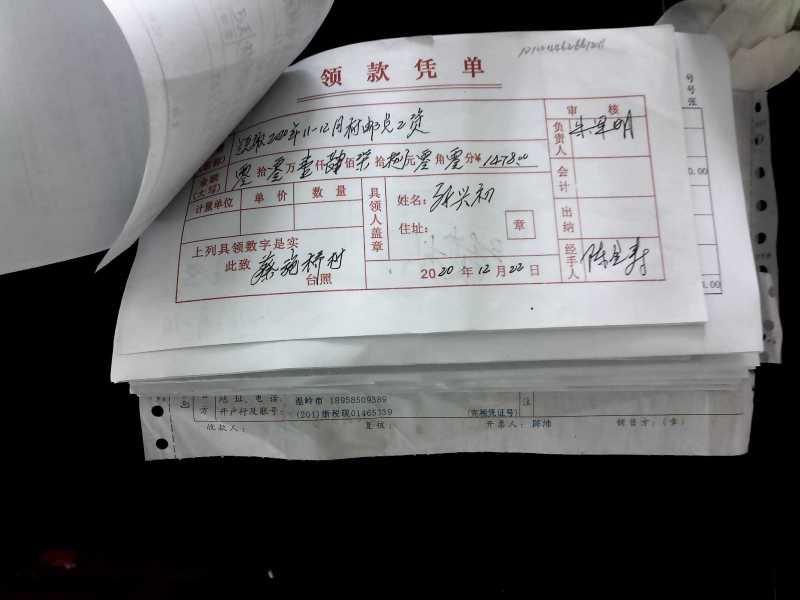 领款凭单
领取2020年11-12月村邮员工资
金额
(大写)
零拾零万壹仟肆佰柒拾捌元零角零分¥ 1478.00
计量单位 单价 数量
上列具领数字是实
此致 蔡施桥村
台照
具领人盖章
姓名: 张兴初
住址:
章
2020年12月22日
审核
负责人
会计
出纳
经手人
号
号
张
0.00
1.00
方
地址、电话: 温岭市 18958509389
开户行及账号: (201)浙税现01465339
(完税凭证号)
注
收款人:
复核:
开票人: 陈沛
销售方:(章)